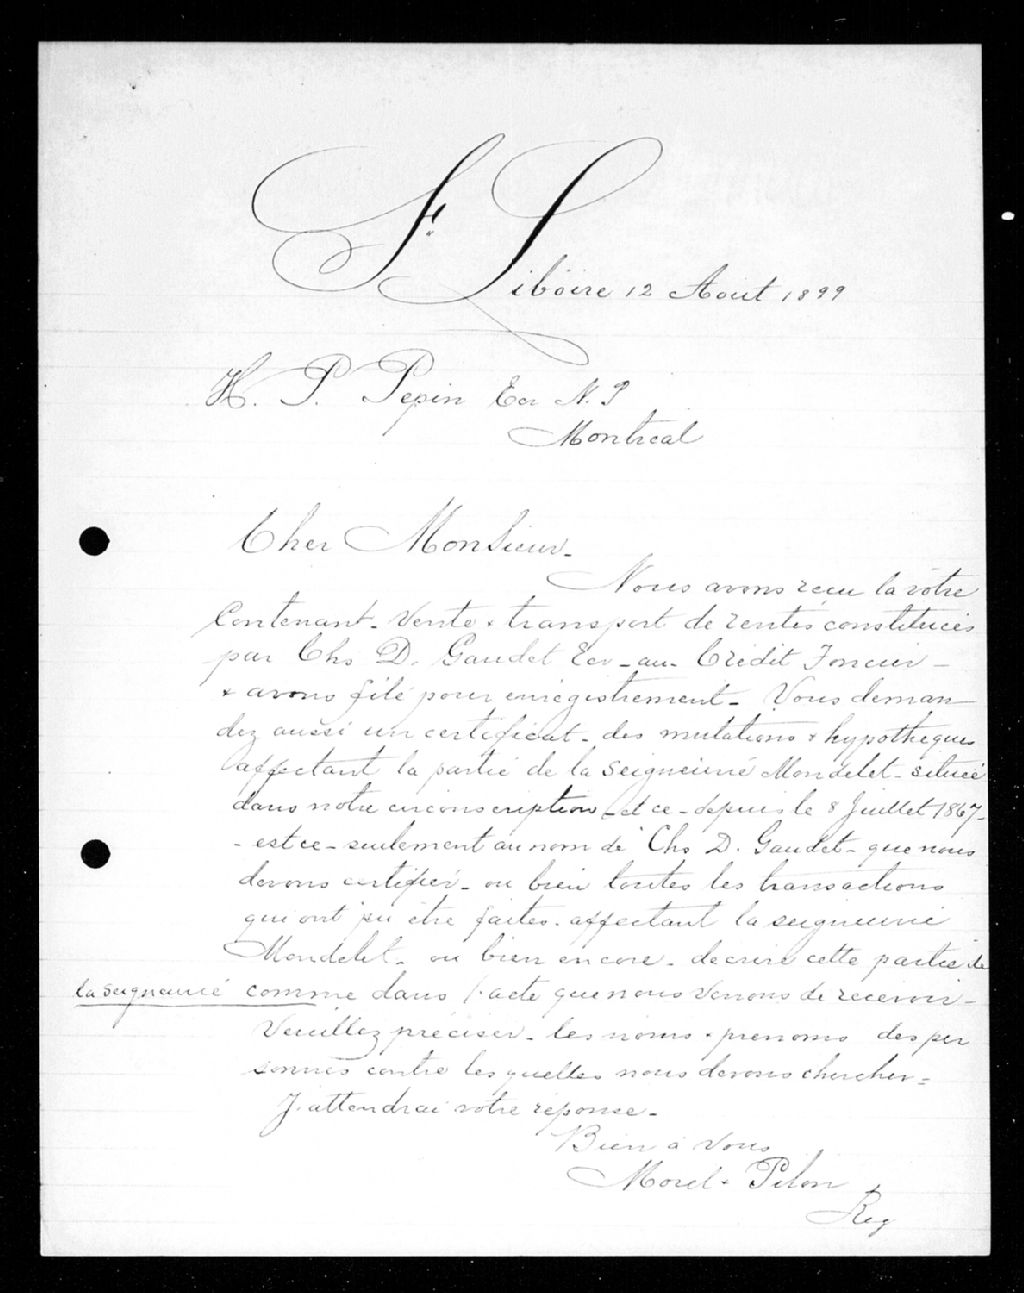 St Liboire 12 Aout 1899
H. P. Pepin Ecr N. P
Montreal
Cher Monsieur.
Nous avons reçu la vôtre
Contenant - Vente & transport de rentes constituées
par Chs D. Gaudet Ecr - au - Crédit Foncier -
& avons filé pour enregistrement - Vous deman
dez aussi un certificat - des mutations & hypotheques
affectant la partie de la Seigneurie Mondelet - située
dans notre circonscription - et ce - depuis le 8 Juillet 1867 -
- est ce - seulement au nom de Chs D. Gaudet - que nous
devons certifier - ou bien toutes les transactions
qui ont pu être faites - affectant la seigneurie
Mondelet - ou bien encore - decrire cette partie de
la seigneurie comme dans l'acte que nous venons de recevoir -
Veuillez préciser - les noms & prenoms des per
sonnes contre lesquelles nous devons chercher =
J'attendrai votre réponse -
Bien à Vous
Morel & Pilon
Reg